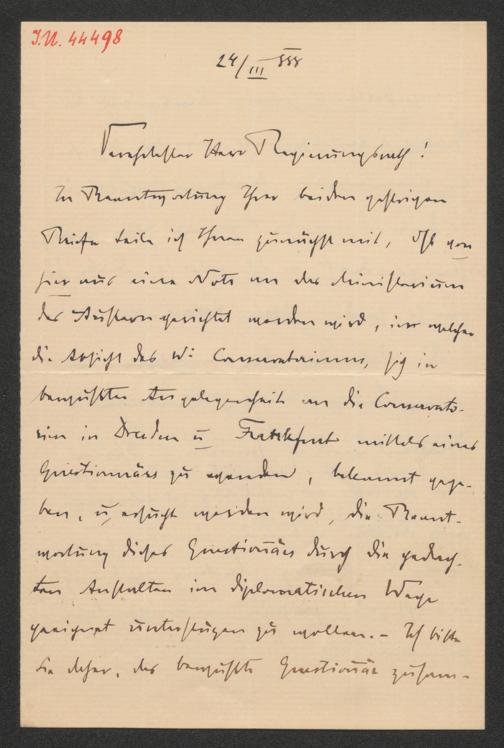 I.N. 44498
24/III 888
Verehrtester Herr Regierungsrath!
In Beantwortung Ihrer beiden gestrigen
Briefe teile ich Ihnen zunächst mit, daß von
hier aus eine Note an das Ministerium
des Äußern gerichtet werden wird, in welcher
die Absicht des Wr Conservatoriums, sich in
bewußter Angelegenheit an die Conservato-
rien in Dresden u Frankfurt mittels eines
Questionnärs zu wenden, bekannt gege-
ben, u ersucht werden wird, die Beant-
wortung dieses Questionärs durch die gedach-
ten Anstalten im diplomatischen Wege
geeignet unterstützen zu wollen. – Ich bitte
Sie daher, das bewußte Questionär zusam-